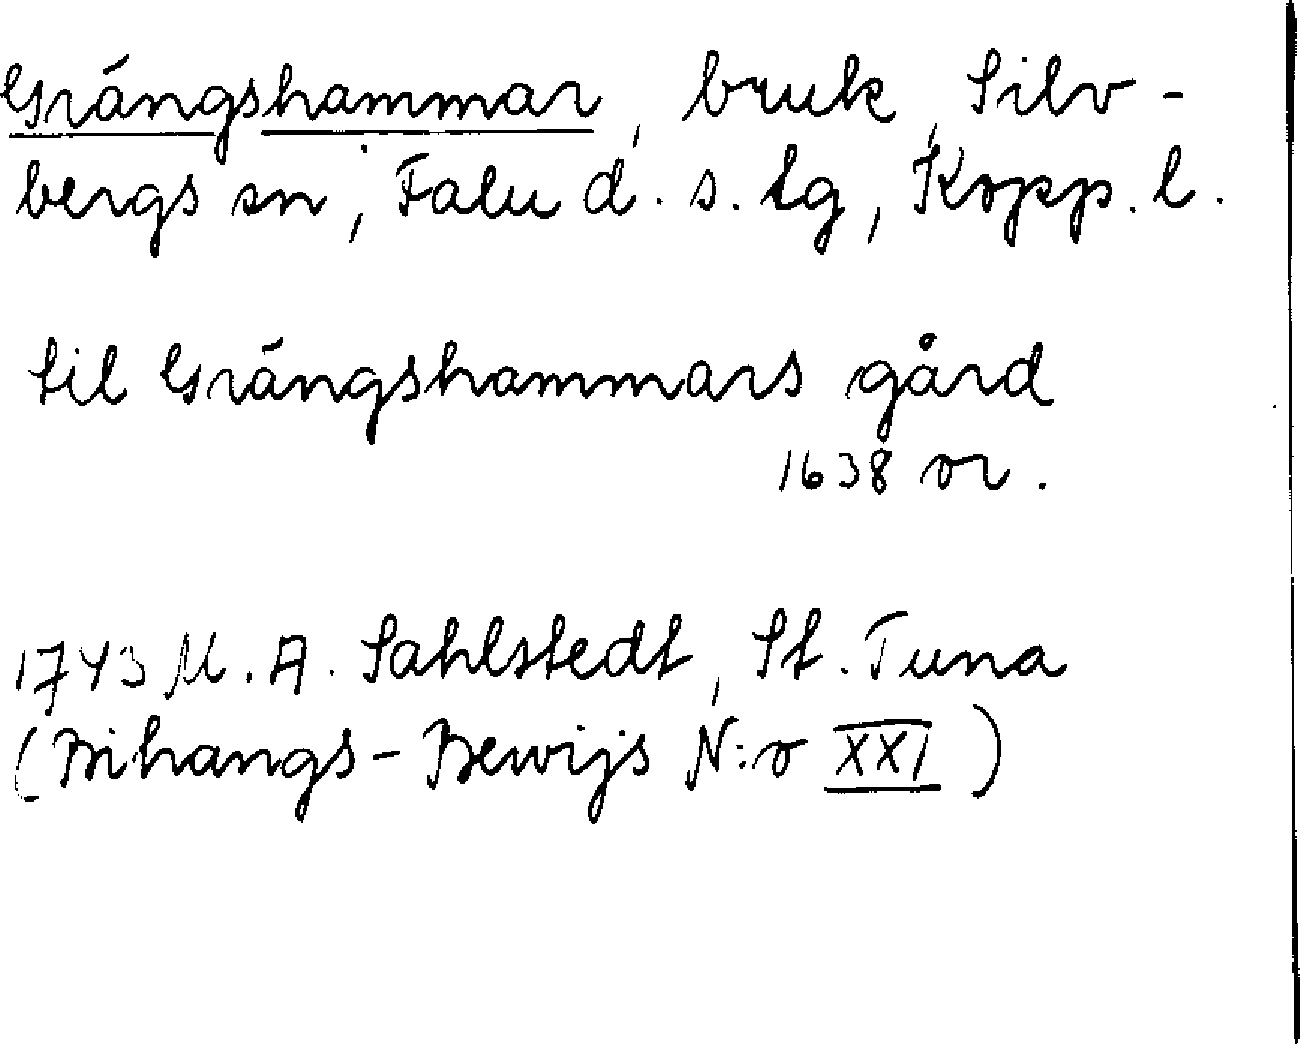 Grängshammar, bruk, Silv-
bergs sn, Falu d. s. tg, Kopp. l.
til Grängshammars gård
1638 or.
1743 M. A. Sahlstedt, St. Tuna
(Bihangs-Bewijs N:o XXI)